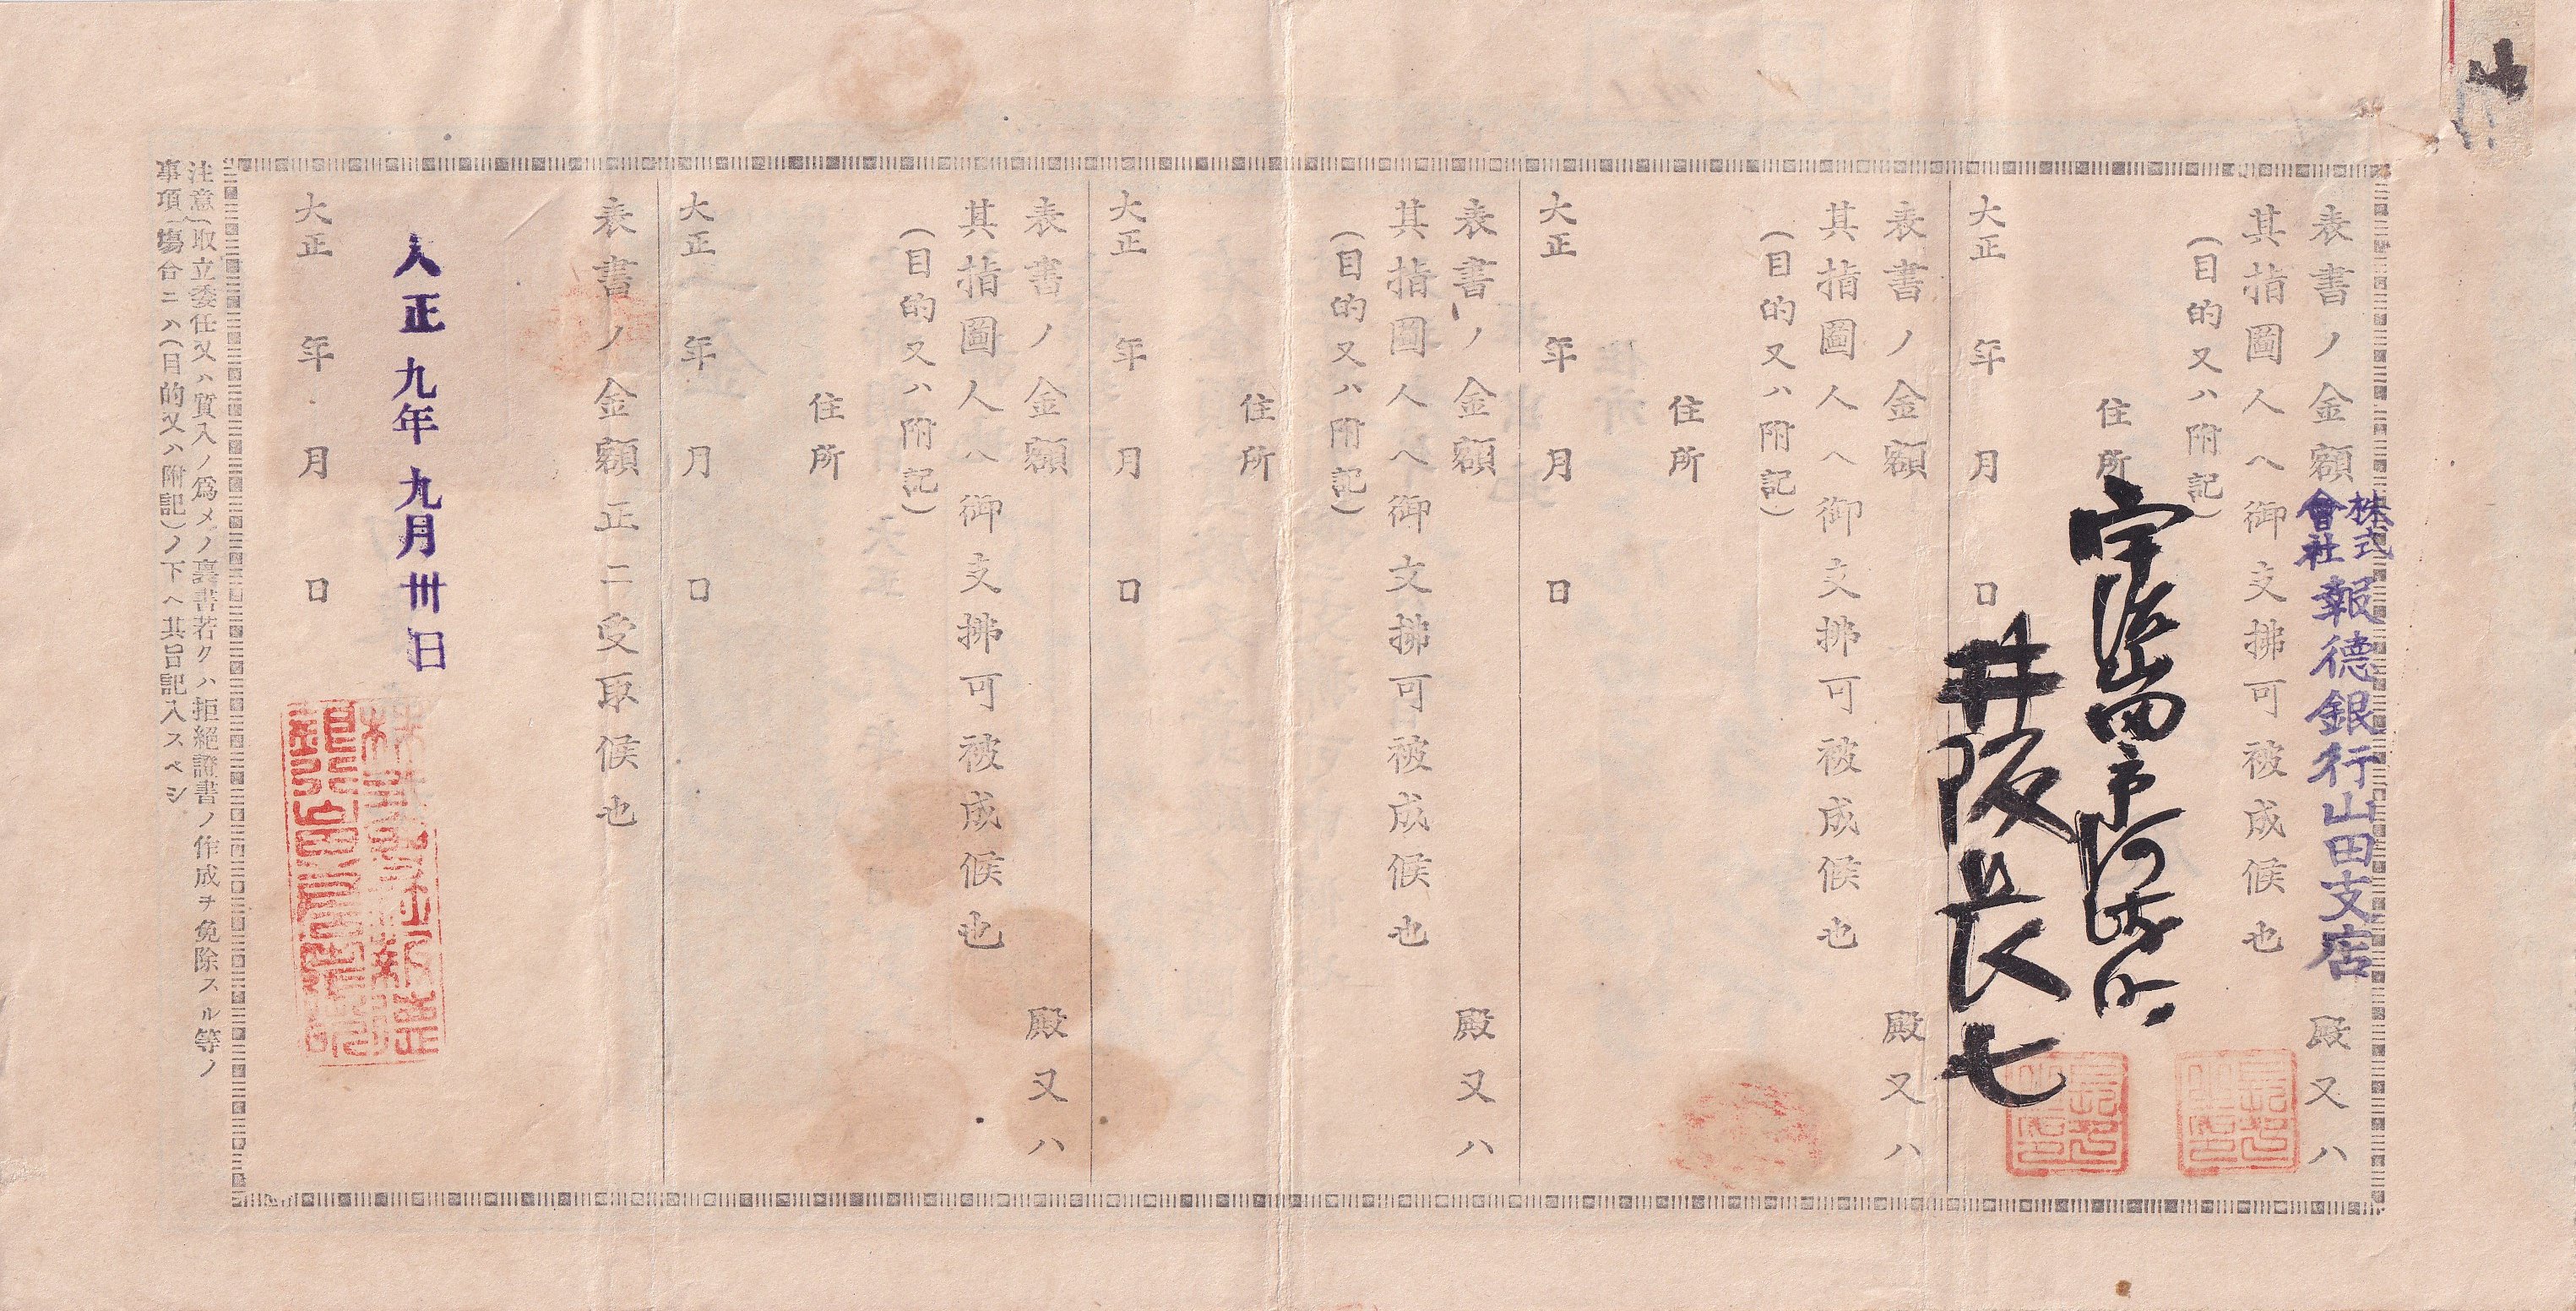 表書ノ金額
株式會社報德銀行山田支店
殿又ハ
其指圖人ヘ御支拂可被成候也
(目的又ハ附記)
住所
宇治山田市河崎町
大正 年 月 日
井阪長七
表書ノ金額 殿又ハ
其指圖人ヘ御支拂可被成候也
(目的又ハ附記)
住所
大正 年 月 日
表書ノ金額 殿又ハ
其指圖人ヘ御支拂可被成候也
(目的又ハ附記)
住所
大正 年 月 日
表書ノ金額 殿又ハ
其指圖人ヘ御支拂可被成候也
(目的又ハ附記)
住所
大正 年 月 日
表書ノ金額正ニ受取候也
大正九年九月卅日
大正 年 月 日
注意(取立委任又ハ質入ノ爲メノ裏書若クハ拒絕證書ノ作成ヲ免除スル等ノ
事項ノ塲合ニハ(目的又ハ附記)ノ下ヘ其旨記入スベシ